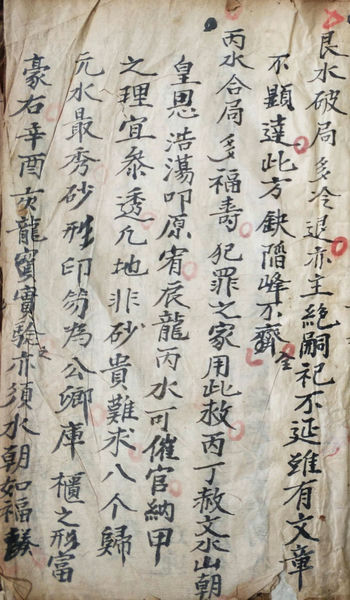 艮水破局多冷退亦主絶嗣祀不延雖有文章
不顯達此方缺陷峰不齊
丙水合局多福壽犯罪之家用此救丙丁赦文水山朝
皇恩浩蕩叩原宥辰龍丙水可催官納甲
之理宜叅透凢地非砂貴難求八个歸
元水最秀砂形印笏為公卿庫櫃之形富
豪右辛酉亥龍實驗亦須水朝如福